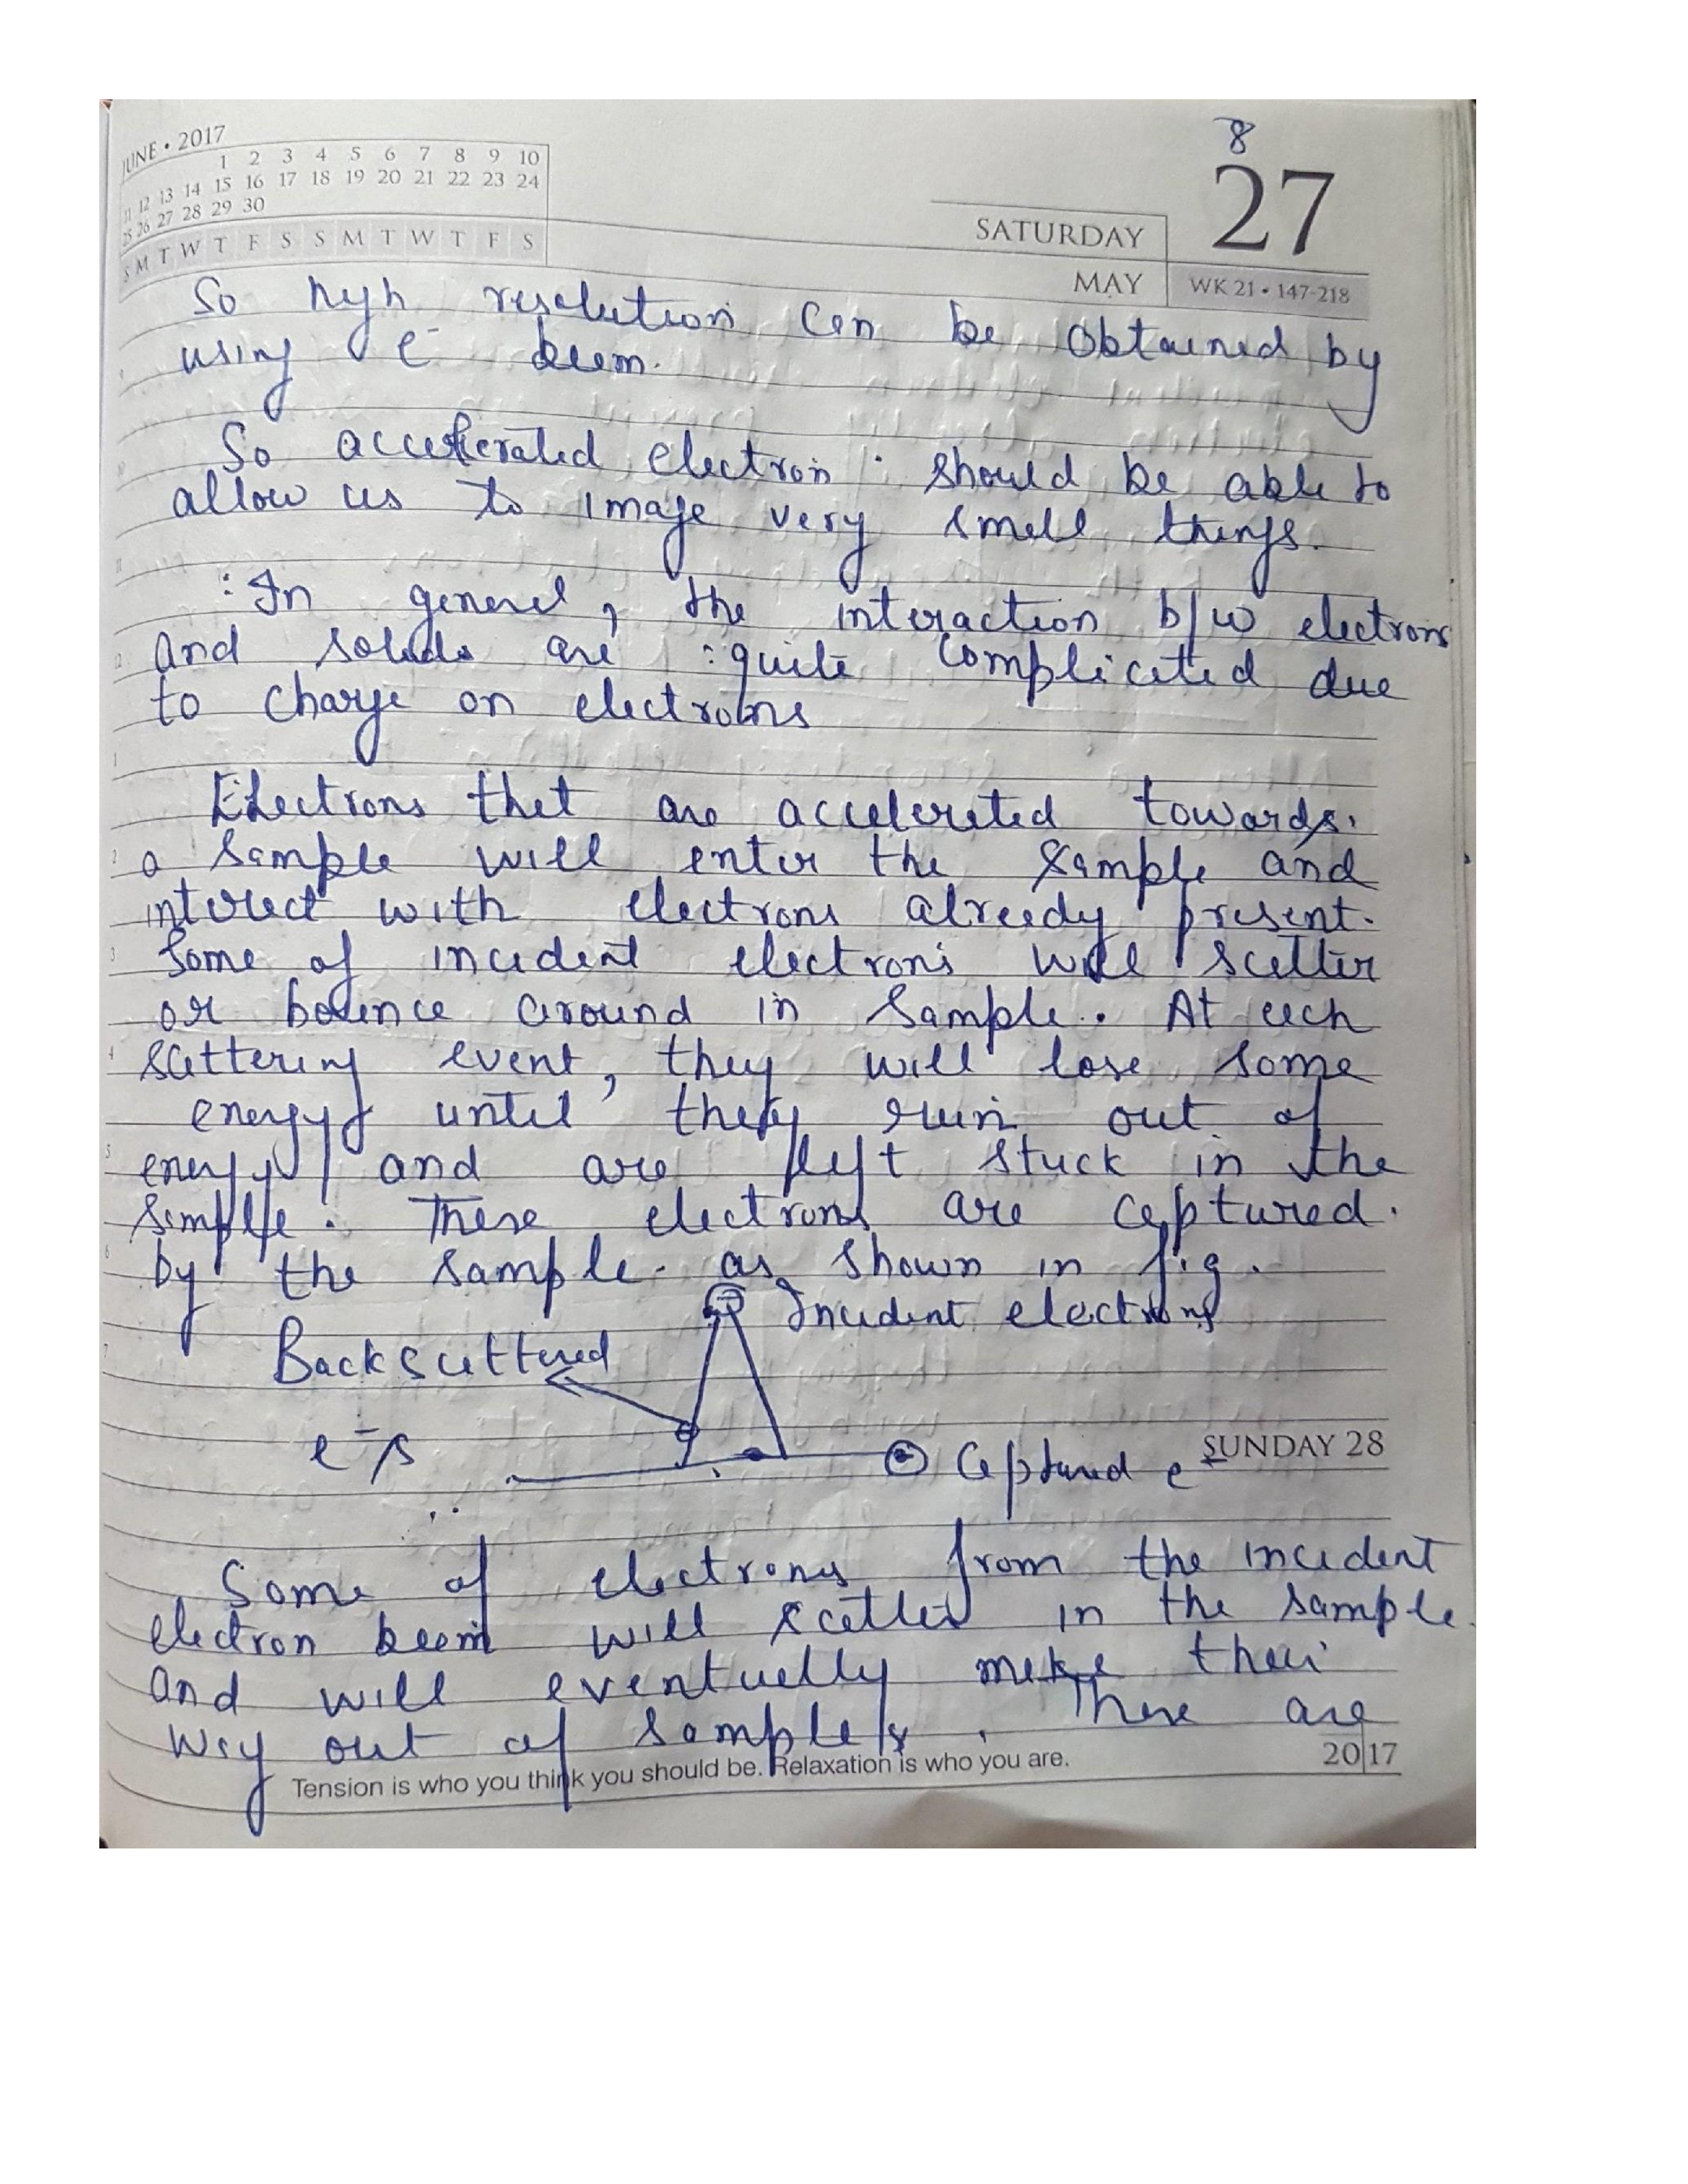 8
JUNE • 2017
1 2 3 4 5 6 7 8 9 10
11 12 13 14 15 16 17 18 19 20 21 22 23 24
25 26 27 28 29 30
S M T W T F S S M T W T F S
27
SATURDAY
MAY
WK 21 • 147-218
So high resolution can be obtained by
using e⁻ beam.
So accelerated electron should be able to
allow us to image very small things.
: In general, the interaction b/w electrons
and solids are quite complicated due
to charge on electrons
Electrons that are accelerated towards
a sample will enter the sample and
interact with electrons already present.
Some of incident electrons will scatter
or bounce around in sample. At each
scattering event, they will lose some
energy until they run out of
energy and are left stuck in the
sample. These electrons are captured.
by the sample. as shown in fig.
Incident electrons
Backscattered
e⁻s
Captured e⁻
SUNDAY 28
Some of electrons from the incident
electron beam will scatter in the sample.
and will eventually make their
way out of sample. These are
Tension is who you think you should be. Relaxation is who you are.
2017